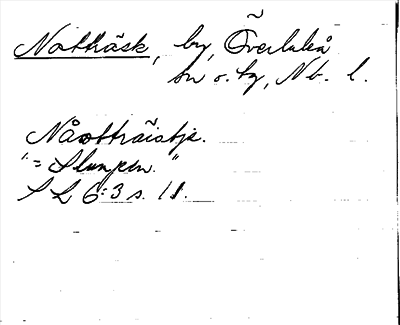 Natträsk, by, Överluleå
sn o. tg, Nb. l.
Nåotträistje.
"= Slumpen."
S L 6:3 s. 18.